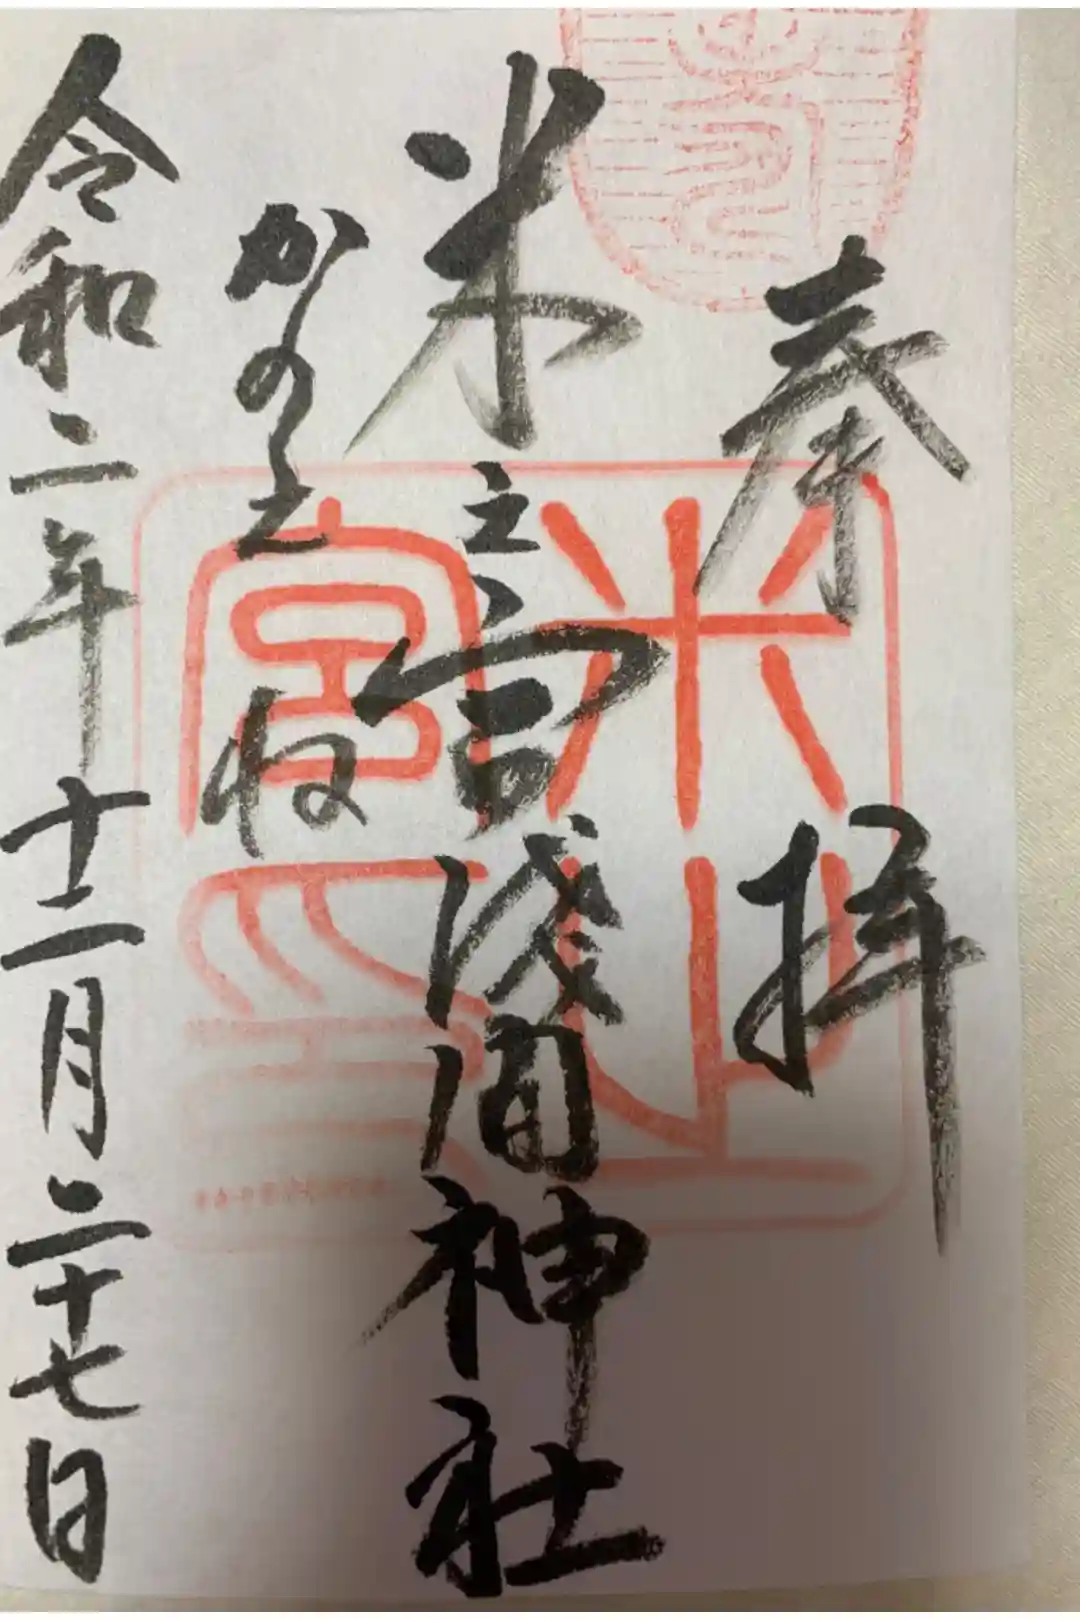 奉拝
米之宮浅間神社
かのえね
令和二年十二月二十七日
米之宮印